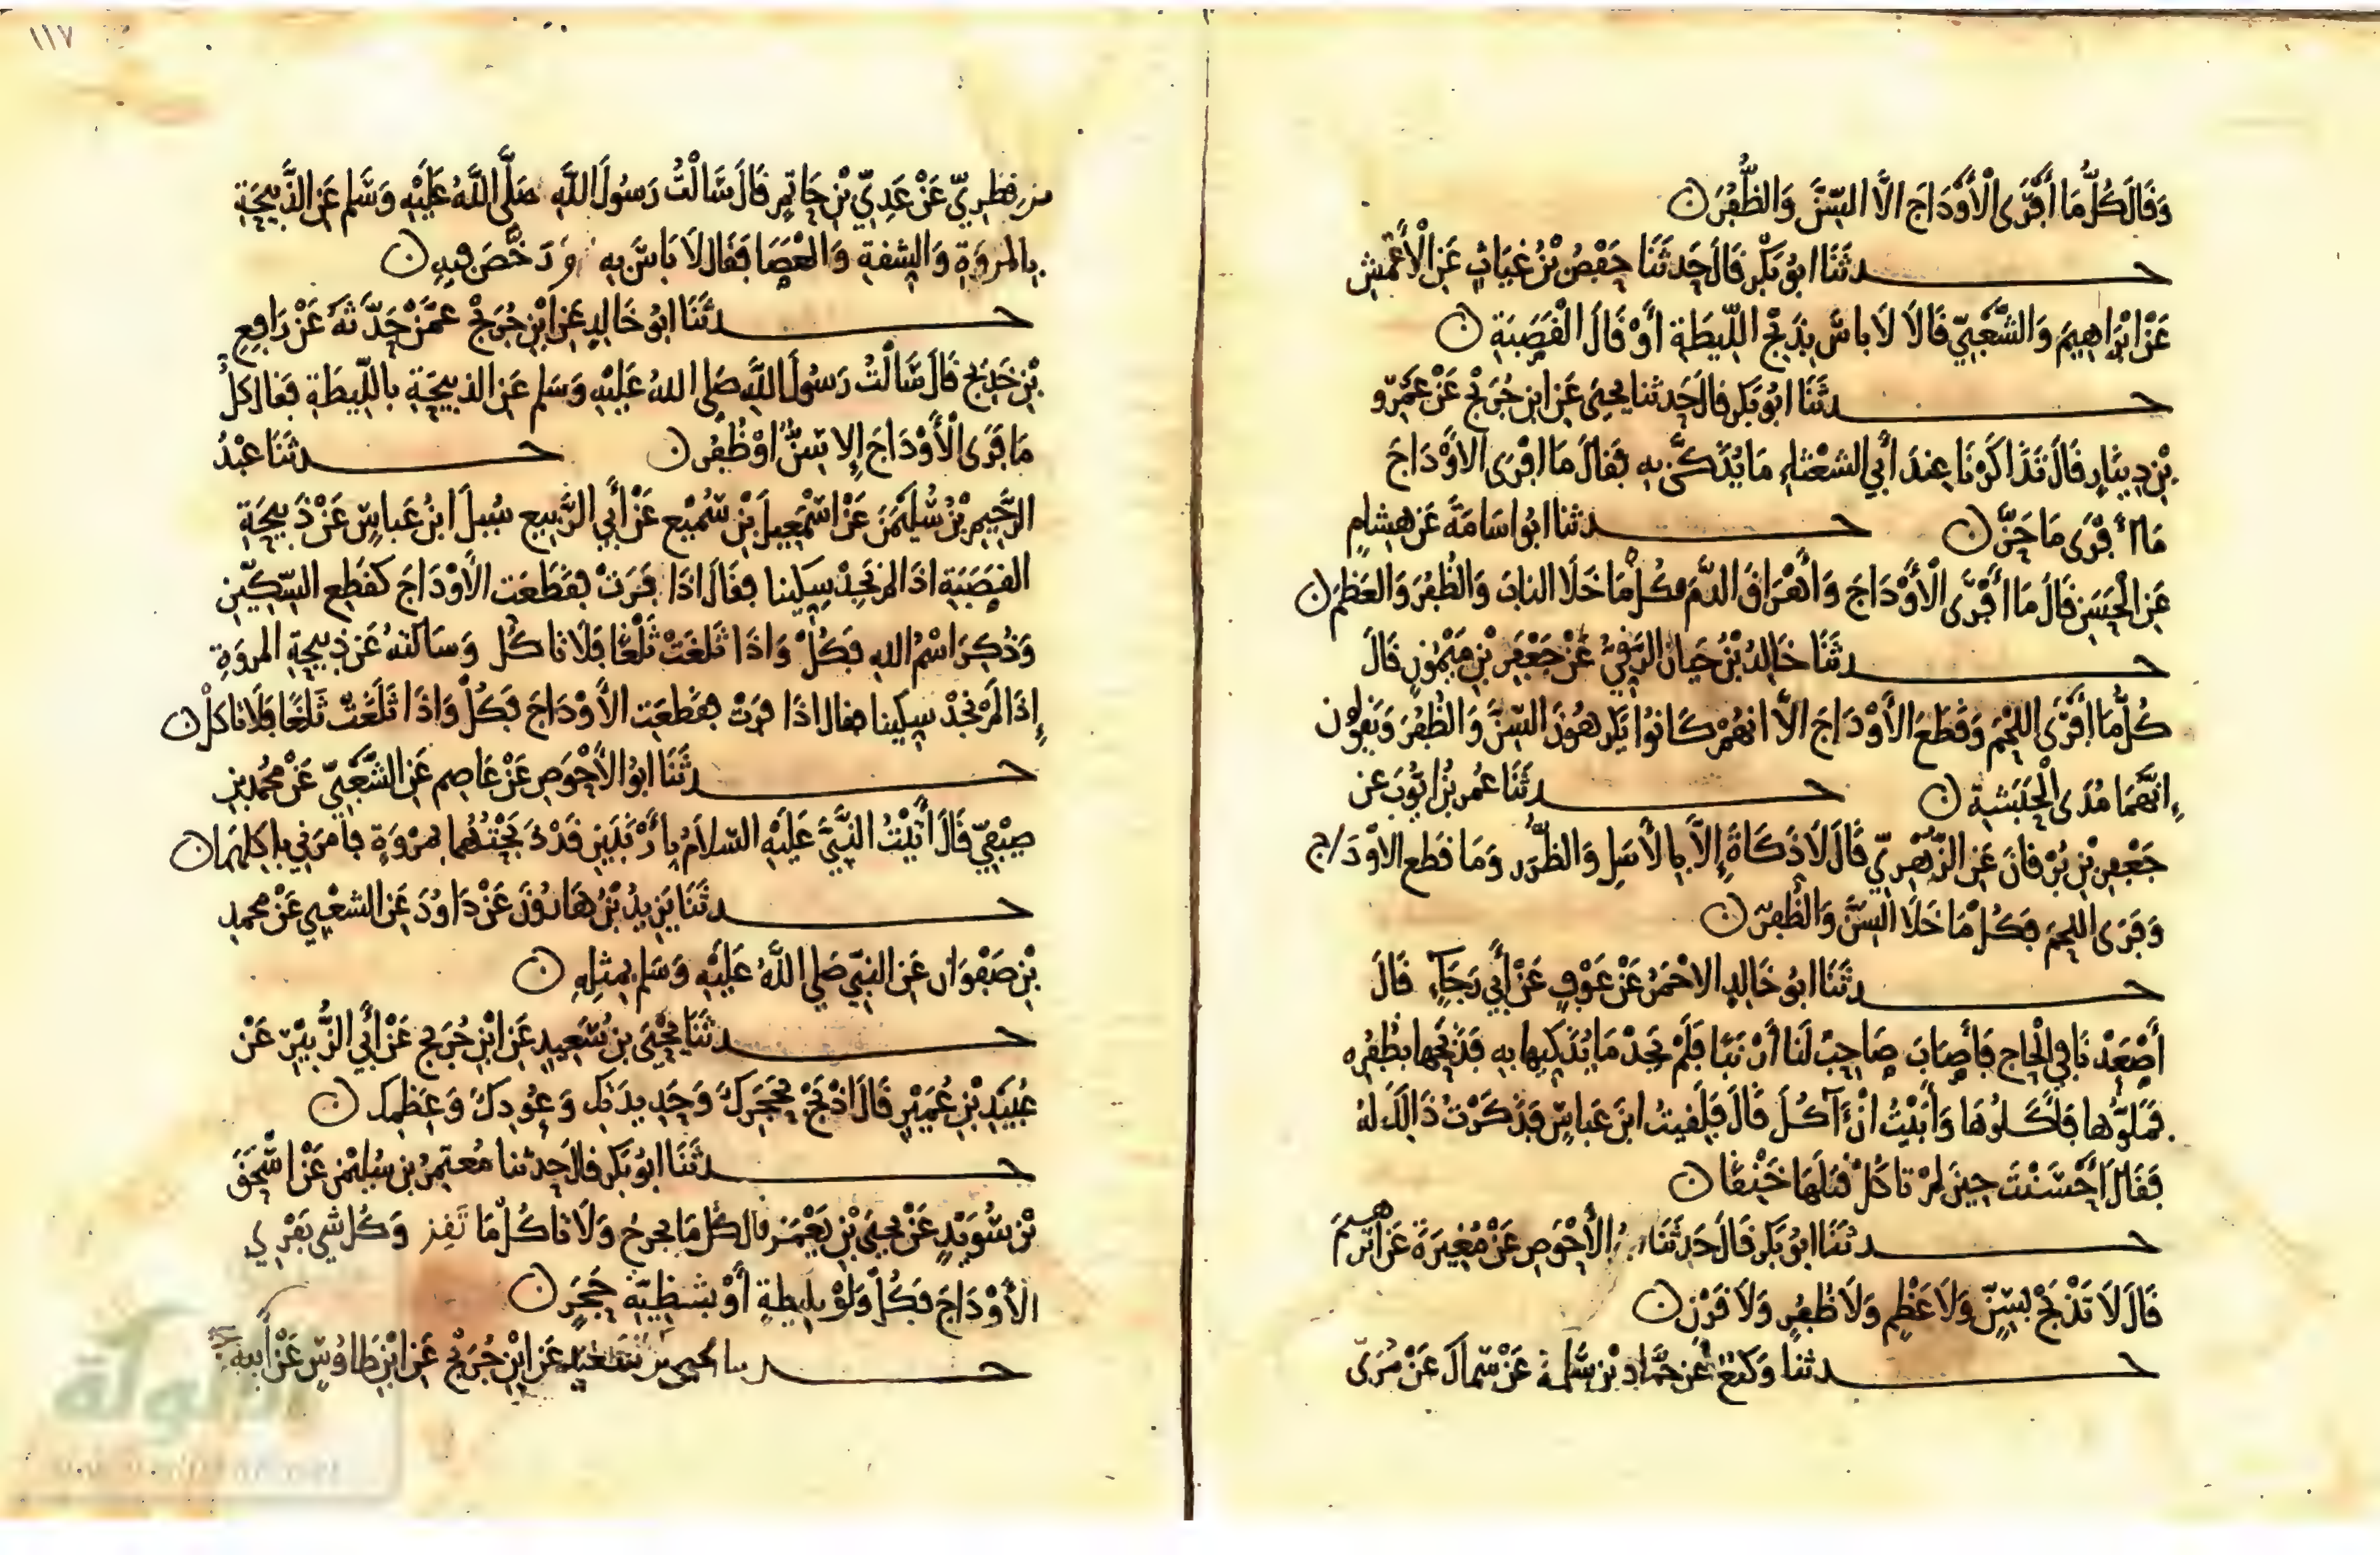 وَقَالَ كُلُّ مَا أَفْرَى الْأَوْدَاجَ الَّا السِّنَّ وَالظُّفُرَ ن
حـدثَنَا ابُو بَكْرٍ قَالَ حَدثَنَا حَفْصُ بْنُ غِيَاثٍ عَنِ الْأَعْمَشِ
عَنْ ابْرَاهِيمَ وَالشَّعْبِيِّ قَالَا لَا باسَ بِذَبْحِ اللِّيطَةِ أَوْ قَالَ الْقَصَبَةِ ن
حـدثَنَا ابُو بَكرٍ قالَ حَدثنا يحيَى عَن ابنِ جُرَيْجٍ عَنْ عَمْرِو
بْنِ دِينَارٍ قَالَ تَذَاكَرْنَا عِندَ أَبِي الشعْثاءِ مَا يُذَكَّى بِهِ فَقالَ مَا افْرَى الاوْدَاجَ
مَا أَفْرَى مَا حَزَّ ن حـدثنا ابوا سَامَةَ عَن هِشامٍ
عَنِ الْحَسَنِ قَالَ مَا أَفْرَى الْأَوْدَاجَ وَأَهْرَاقَ الدَّمَ فكُلْ مَا خَلَا النابَ وَالظُفُرَ وَالعَظْمَ ن
حـدثَنَا خَالِدُ بْنُ حَيانَ الرَقِّيُّ عَنْ جَعْفَرِ بْنِ مَيْمُونٍ قَالَ
كُلُّ مَا أفْرَى اللحْمَ وَقَطَعَ الأَوْدَاجَ الَّا انهُمْ كَانُوا يَكرَهُونَ السِّنَّ وَالظُفُرَ وَيَقولون
إنَّهُمَا مُدَى الْحَبَشَةِ ن حـدثَنَا عُمر بْنُ ايُّوبَ عَن
جَعْفَرِ بْنِ بُرْقانَ عَنِ الزُّهْرِيِّ قَالَ لَا ذَكَاةَ إِلَّا بِالْأَسَلِ وَالظُّرَرِ وَمَا قَطع الاوْدَاج
وَفَرَى اللحمَ فَكُلْ مَا خَلَا السِّنَّ وَالظُفُرَ ن
حـدثَنَا ابُو خَالِدٍ الاحْمَرُ عَنْ عَوْفٍ عَنْ أَبِي رَجَاءٍ قَالَ
أَصْعَدْنَا فِي الْحاجِ فَأَصَابَ صَاحِبٌ لَنَا أَرْنَبًا فَلَمْ يَجِدْ مَا يُذَكِيهَا بِهِ فَذَبَحَها بظُفُرِهِ
فَمَلُّوْهَا فَأَكَلُوهَا وَأَبَيْتُ انْ آكُلَ قَالَ فَلَقِيتُ ابْنَ عَباسٍ فَذَكَرْتُ ذَالِكَ لهُ
فَقَالَ أَحْسَنْتَ حِينَ لمْ تاكُلْ قَتَلَهَا خَنْقًا ن
حـدثَنَا ابُو بَكر قَالَ حَدثَنَا الأَحْوَصِ عَنْ مُغِيرَةَ عَنْ ابْرهيمَ
قَالَ لَا تَذْبَحْ بسِنٍّ وَلَا عَظْمٍ وَلَا ظُفُرٍ وَلَا قَرْن ن
حـدثنا وَكيعٌ عَن حَمَّادِ بْنِ سَلَمةَ عَنْ سِماكَ عَنْ مُرَيّ
بن قطريّ عَنْ عَدِيِّ بْنِ حَاتِمٍ قَالَ سَالْتُ رَسُولَ اللَّهِ صَلَّى اللَّهُ عَلَيْهِ وَسَّلم عَنِ الذَّبِيحَةِ
بِالمروَةِ وَالشقةِ وَالْعَصَا فَقَال لَا بَاسَ بِهِ وَرَخَّصَ فِيهِ ن
حـدثَنَا ابُو خَالِدٍ عَنِ ابْنِ جُرَيْجٍ عَمَّنْ حَدَّثهُ عَنْ رَافِعِ
بْنِ خَدِيجٍ قَالَ سَالْتُ رَسُولَ اللَّهِ صَلى اللهُ عَليْهِ وَسَلم عَنِ الذبيحَةِ باللِّيطَةِ فَقال كلْ
مَا فَرَى الْأَوْدَاجَ إِلا سِنٌّ اوْ ظُفُر ن حـدثَنَا عَبْدُ
الرَّحِيمِ بْنُ سُلَيْمَنَ عَنْ اسْمَعِيلَ بْنِ سُمَيْعٍ عَنْ أَبِي الرَّبِيعِ سُيلَ ابْنُ عَباسٍ عَنْ ذَبِيحَةِ
القَصَبَةِ اذَا لمْ تَجِدْ سِكِّينا فقالَ اذَا فَرَتْ فقَطَعَت الاوْدَاجَ كقَطْعِ السِّكِّينِ
وَذُكِرَ اسْمُ اللهِ فَكُلْ وَاذَا ثَلَغَتْ ثَلْغًا فَلَا تاكُل وَسَالتهُ عَن ذبِيحَةِ المروَةِ
إذَا لَمْ تجدْ سِكِينا فقال اذَا فَرَتْ فقَطَعَتِ الاوْدَاجَ فَكُلْ وَاذَا ثَلَغَتْ ثَلْغًا فَلَا تاكلْ ن
حـدثَنَا ابوُ الأَحْوَصِ عَنْ عَاصِم عَنِ الشَّعْبِيِّ عَنْ مُحَمَّد بنِ
صَيْفِيٍّ قَالَ أَتَيْتُ النَّبِيَّ عَلَيْهِ السَّلَامُ بِأَرْنَبَيْنِ قَدْ ذَبَحْتُهُمَا بِمَرْوَةٍ فأمَرَنِي باكلِهِمَا ن
حـدثَنَا يَزِيدُ بْنُ هَارُونَ عَنْ دَاوُدَ عَنِ الشعْبِي عَنْ محمدِ
بْنِ صَفْوَان عَنِ النبِيّ صَلي اللَّهُ عَلَيْهِ وَسَلم بمثلِهِ ن
حـدثَنَا يَحْيَى بنُ سَعِيدٍ عَن ابْنِ جُرَيجٍ عَنْ أَبِي الزُّبَيْرِ عَنْ
عُبَيْدِ بْنِ عُمَيْرٍ قَالَ اذْبَحْ بحَجَرِكَ وَحَدِيدَتِك وَعُودِكَ وَعَظمِك ن
حـدثَنَا ابُو بَكر قالَ حدثنا مُعتمِرُ بن سُليْمنَ عَنْ اسْحَقَ
بْنِ سُوَيْدٍ عَنْ يحيَى بْنِ يَعْمَرَ قال كُل مَا يجرحُ وَلَا تاكُلْ مَا وَكُل شي يَفْرِي
الأَوْدَاجَ فَكُلْ وَلَوْ بلِيطةٍ أوْ بشظِيَّةِ حَجَرٍ ن
حـدثنا يحيى بن سَعيدٍ عَن ابْنِ جُرَيْجٍ عَنِ ابْنِ طَاوُسٍ عَنْ أَبِيهِ
١١٧
الألوكة